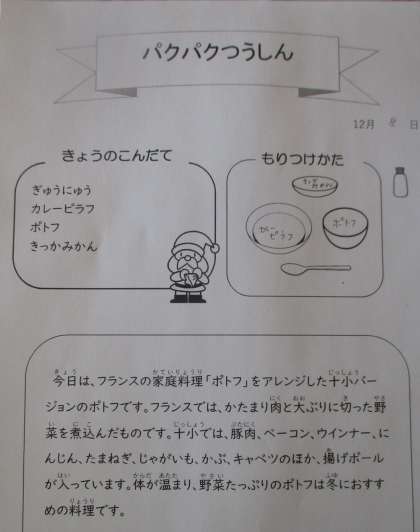 パクパクつうしん
12月 8 日
きょうのこんだて
ぎゅうにゅう
カレーピラフ
ポトフ
きっかみかん
もりつけかた
きっか
みかん
カレー
ピラフ
ポトフ
今日は、フランスの家庭料理「ポトフ」をアレンジした十小バー
ジョンのポトフです。フランスでは、かたまり肉と大ぶりに切った野
菜を煮込んだものです。十小では、豚肉、ベーコン、ウインナー、に
んじん、たまねぎ、じゃがいも、かぶ、キャベツのほか、揚げボール
が入っています。体が温まり、野菜たっぷりのポトフは冬におすす
めの料理です。